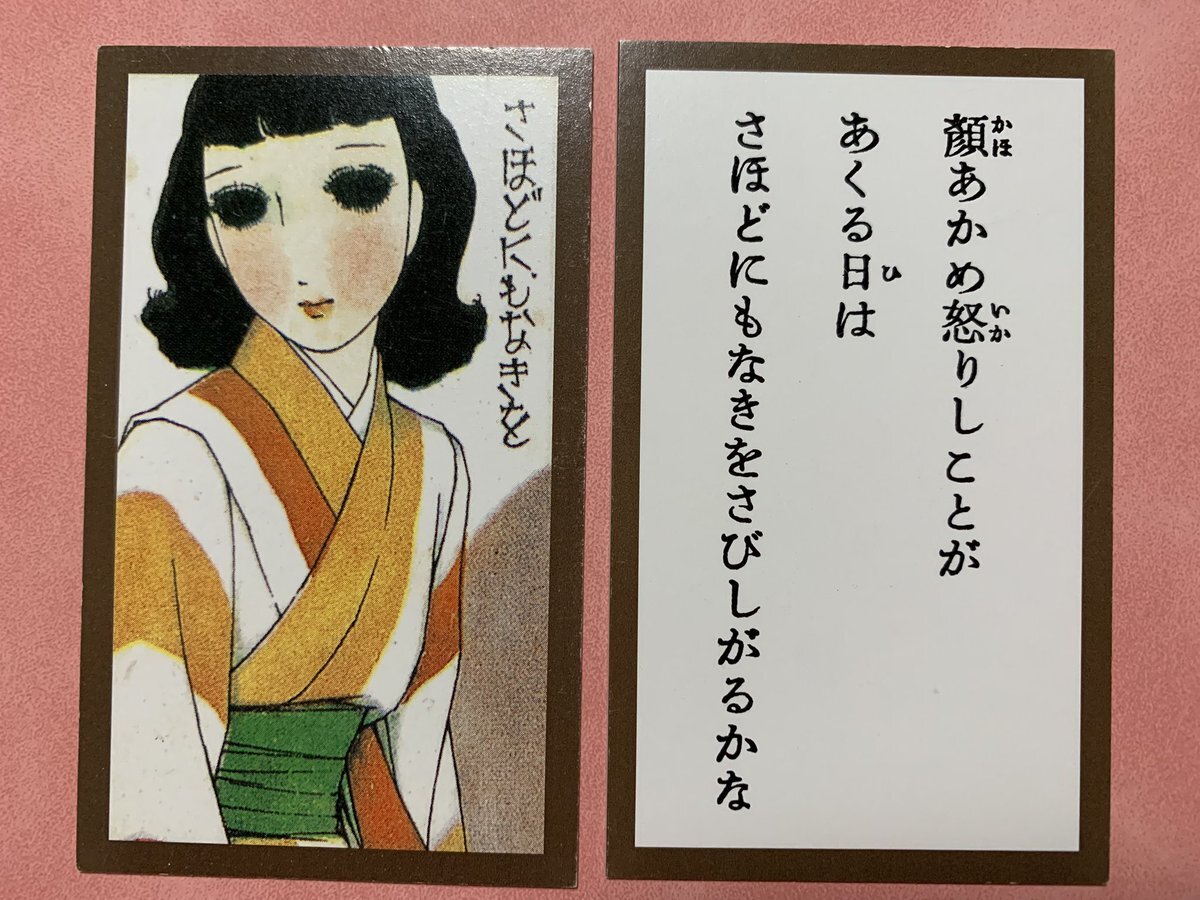 さほどにもなきを
顏あかめ怒りしことが
かほ
いか
あくる日は
ひ
さほどにもなきをさびしがるかな